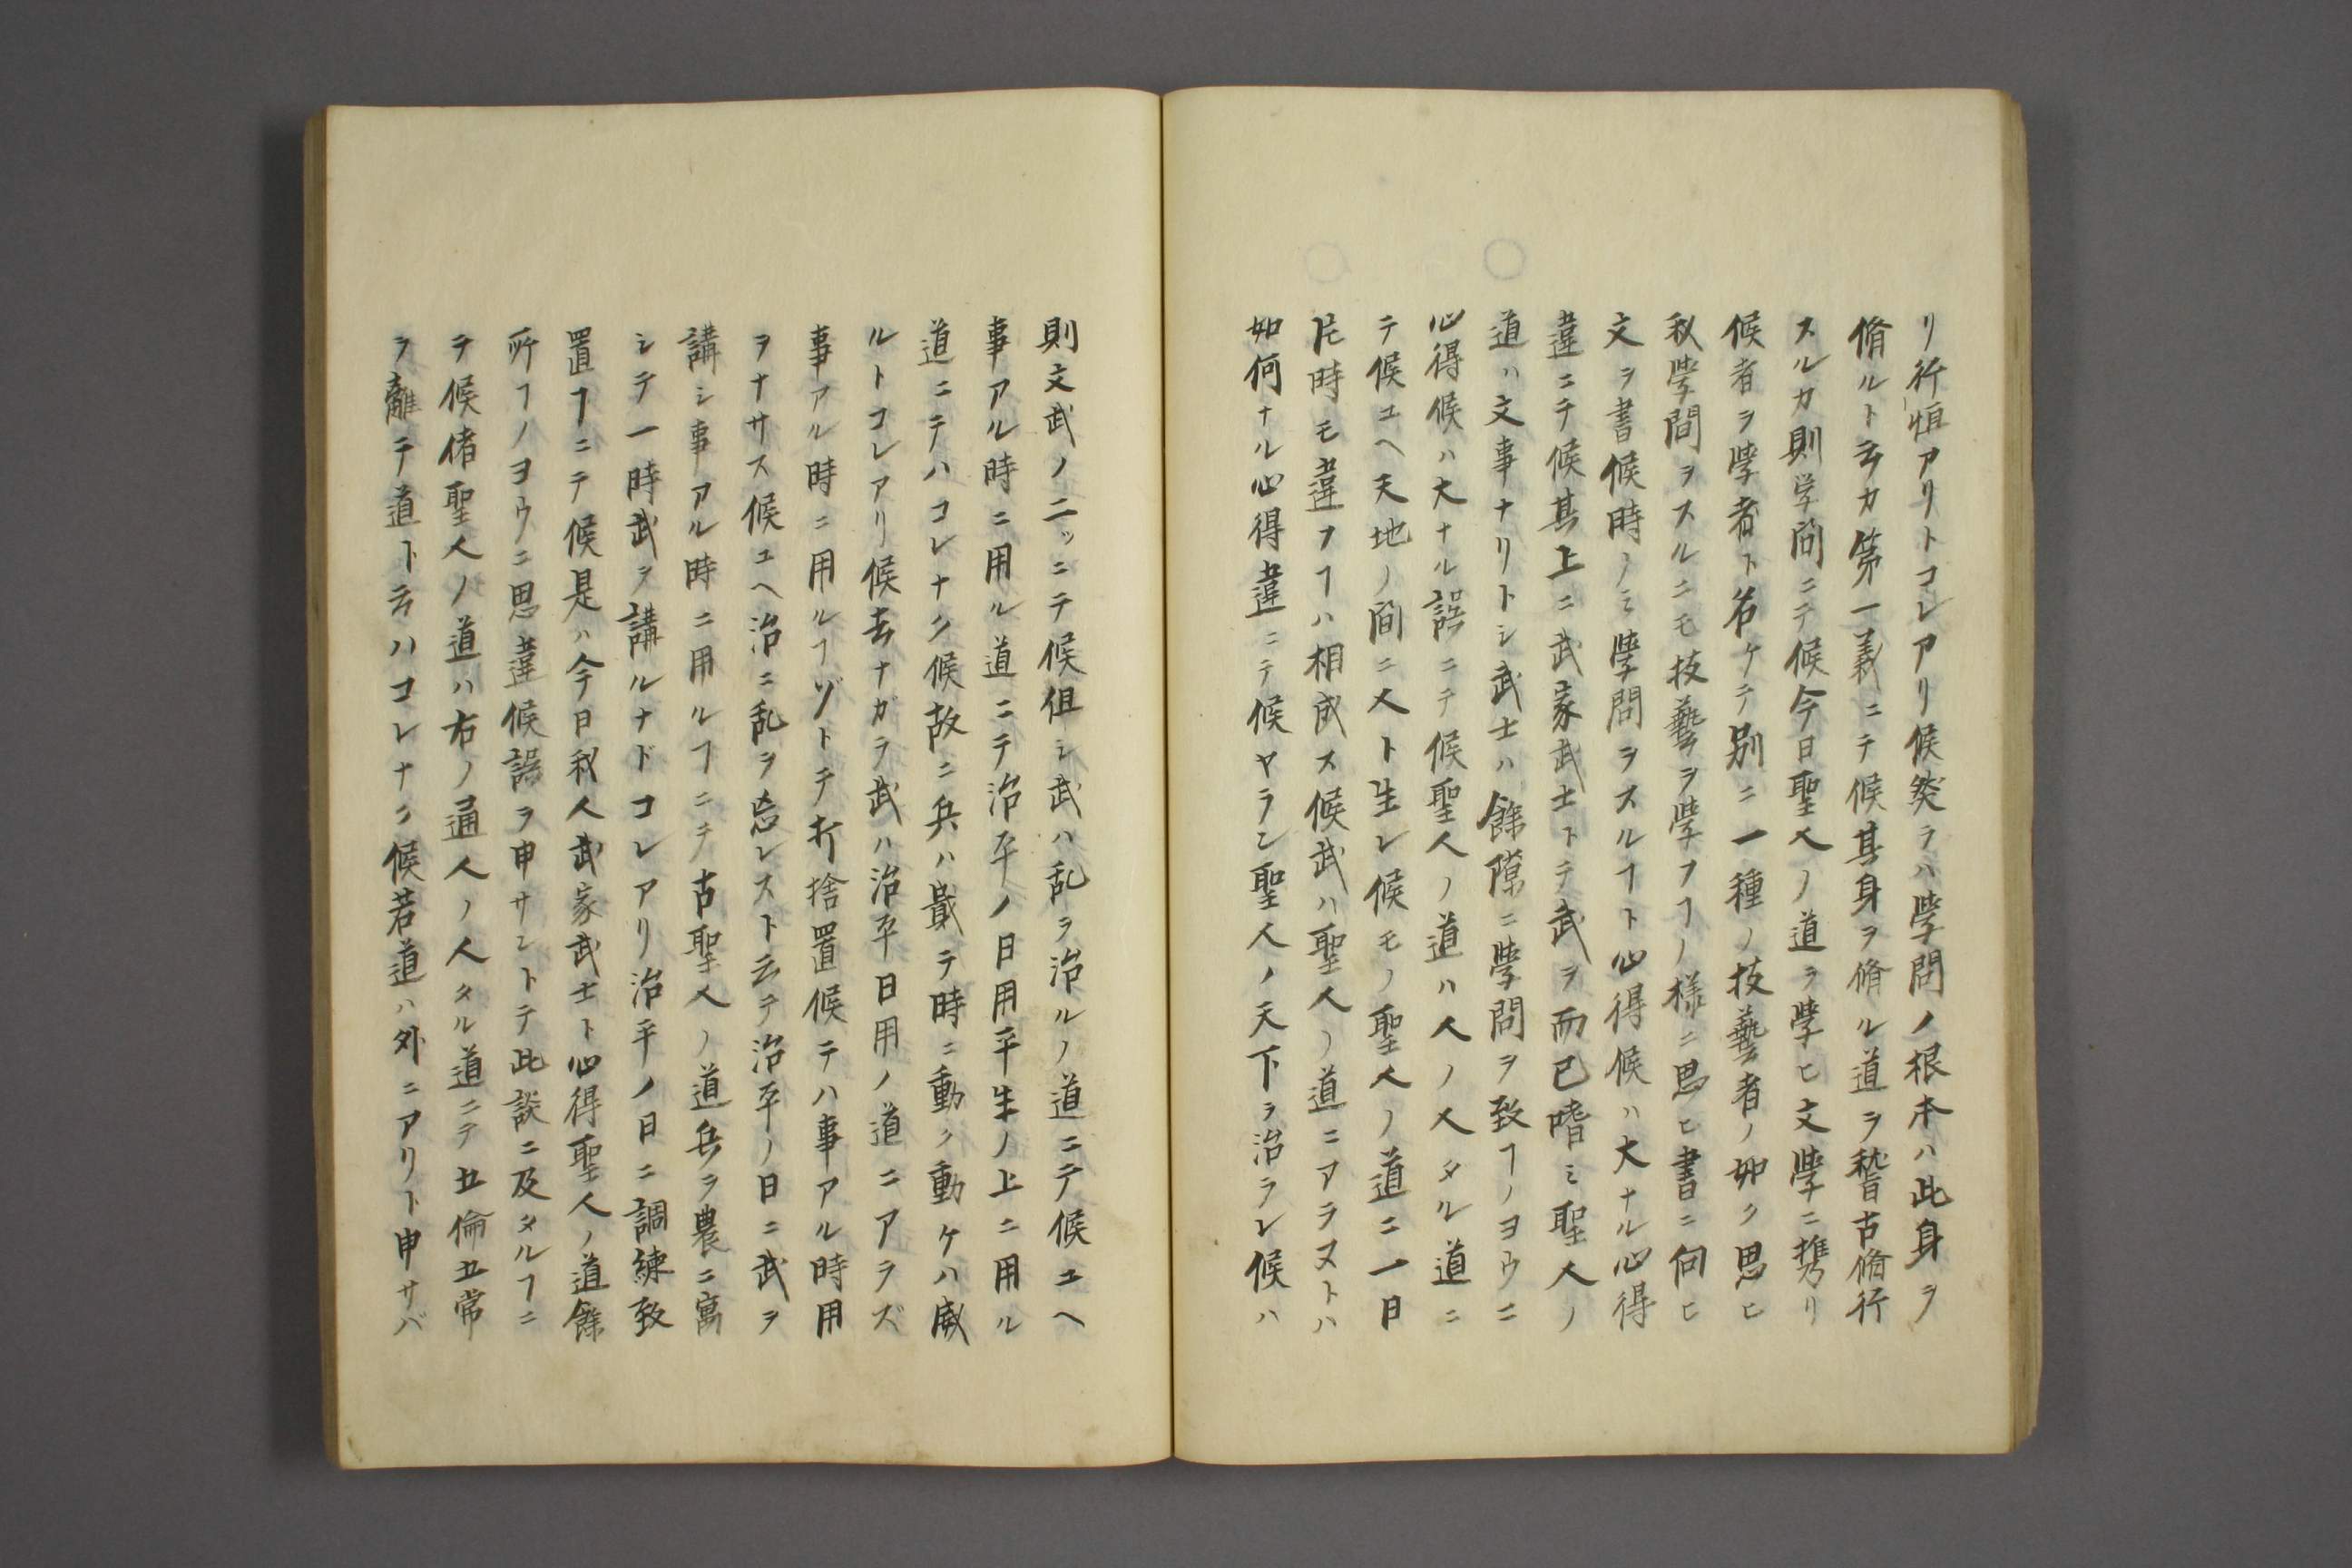 リ行恒アリトコレアリ候然ラハ學問ノ根本ハ此身ヲ
脩ルト云カ第一義ニテ候其身ヲ脩ル道ヲ稽古脩行
スルカ則学問ニテ候今日聖人ノ道ヲ學ヒ文學ニ携リ
候者ヲ學者ト名ケテ別ニ一種ノ技藝者ノ如ク思ヒ
秋學問ヲスルニモ技藝ヲ學フヿノ様ニ思ヒ書ニ向ヒ
文ヲ書候時ノミ學問ヲスルヿト心得候ハ大ナル心得
違ニテ候其上ニ武家武士トテ武ヲ而已嗜ミ聖人ノ
道ハ文事ナリトシ武士ハ餘隙ニ學問ヲ致ヿノヨウニ
心得候ハ大ナル誤ニテ候聖人ノ道ハ人ノ人タル道ニ
テ候ユヘ天地ノ間ニ人ト生レ候モノ聖人ノ道ニ一日
片時モ違フヿハ相成ス候武ハ聖人ノ道ニアラヌトハ
如何ナル心得違ニテ候ヤラン聖人ノ天下ヲ治ラレ候ハ
則文武ノ二ッニテ候徂シ武ハ乱ヲ治ルノ道ニテ候ユヘ
事アル時ニ用ル道ニテ治平ノ日用平生ノ上ニ用ル
道ニテハコレナク候故ニ兵ハ戢テ時ニ動ク動ケハ威
ルトコレアリ候去ナガラ武ハ治平日用ノ道ニアラズ
事アル時ニ用ルヿゾトテ打捨置候テハ事アル時用
ヲナサス候ユヘ治ニ乱ヲ忘レスト云テ治平ノ日ニ武ヲ
講シ事アル時ニ用ルヿニテ古聖人ノ道兵ヲ農ニ寓
シテ一時武ヲ講ルナドコレアリ治平ノ日ニ調練致
置ヿニテ候是ハ今日秋人武家武士ト心得聖人ノ道餘
所ヿノヨウニ思違候誤ヲ申サントテ此談ニ及タルヿニ
テ候偖聖人ノ道ハ右ノ通人ノ人タル道ニテ五倫五常
ヲ離テ道ト云ハコレナク候若道ハ外ニアリト申サバ